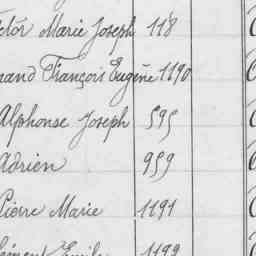 ctor Marie Joseph 118
mand François Eugène 1190
Alphonse Joseph 595
Adrien 959
Pierre Marie 1191
Clément Emile 1192